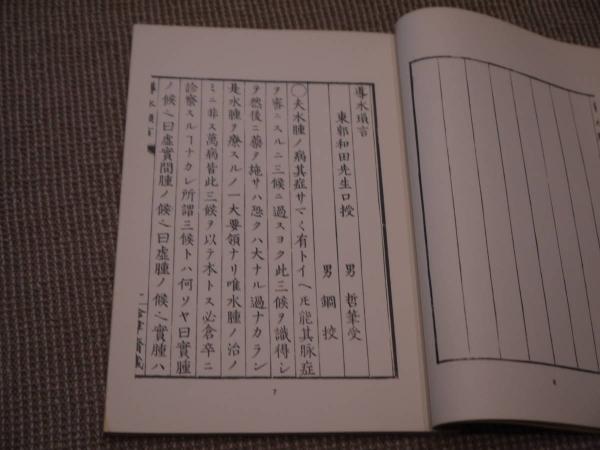 導水瑣言
東郭和田先生口授
男 哲筆受
男 鋼校
〇夫水腫ノ病其症サマ〱有トイヘ𪜈能其脉症
ヲ審ニスルニ三候ニ過スヨク此三候ヲ識得シ
ヲ然後ニ藥ヲ施サハ恐クハ大ナル過ナカラン
是水腫ヲ療スルノ一大要領ナリ唯水腫ノ治ノ
ミニ非ス萬病皆此三候ヲ以テ本トス必倉卒ニ
診察スルヿナカレ所謂三候トハ何ソヤ曰實腫
ノ候曰虚實間腫ノ候曰虚腫ノ候實腫ハ
導水瑣言
7